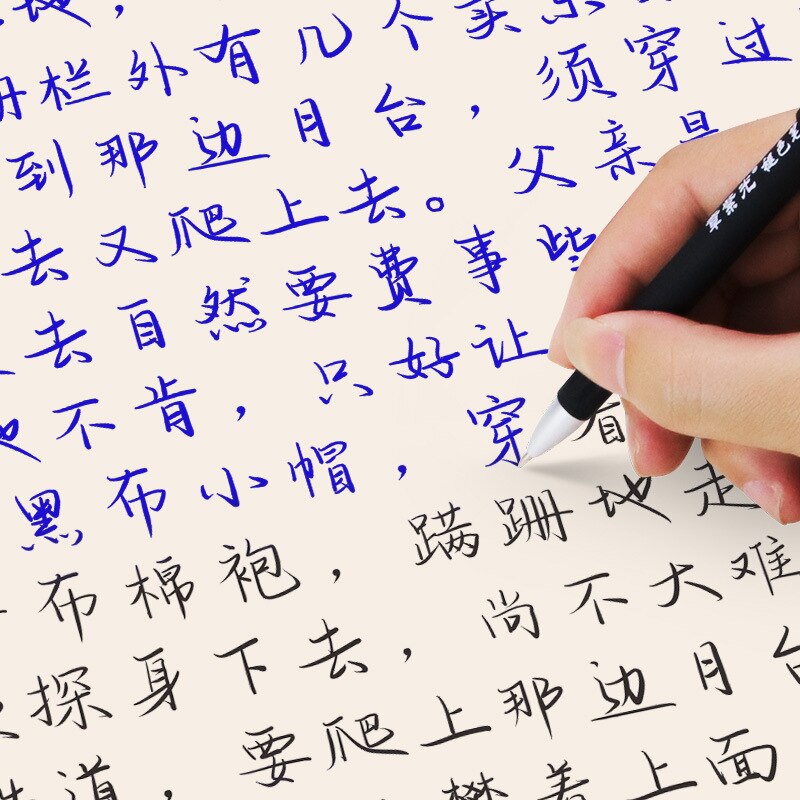 地，
栏外有几个卖东
到那边月台，须穿过
去又爬上去。父亲是
去自然要费事些
不肯，只好让
黑布小帽，穿着
布棉袍，蹒跚地走
探身下去，尚不大难
道，要爬上那边月台
攀着上面